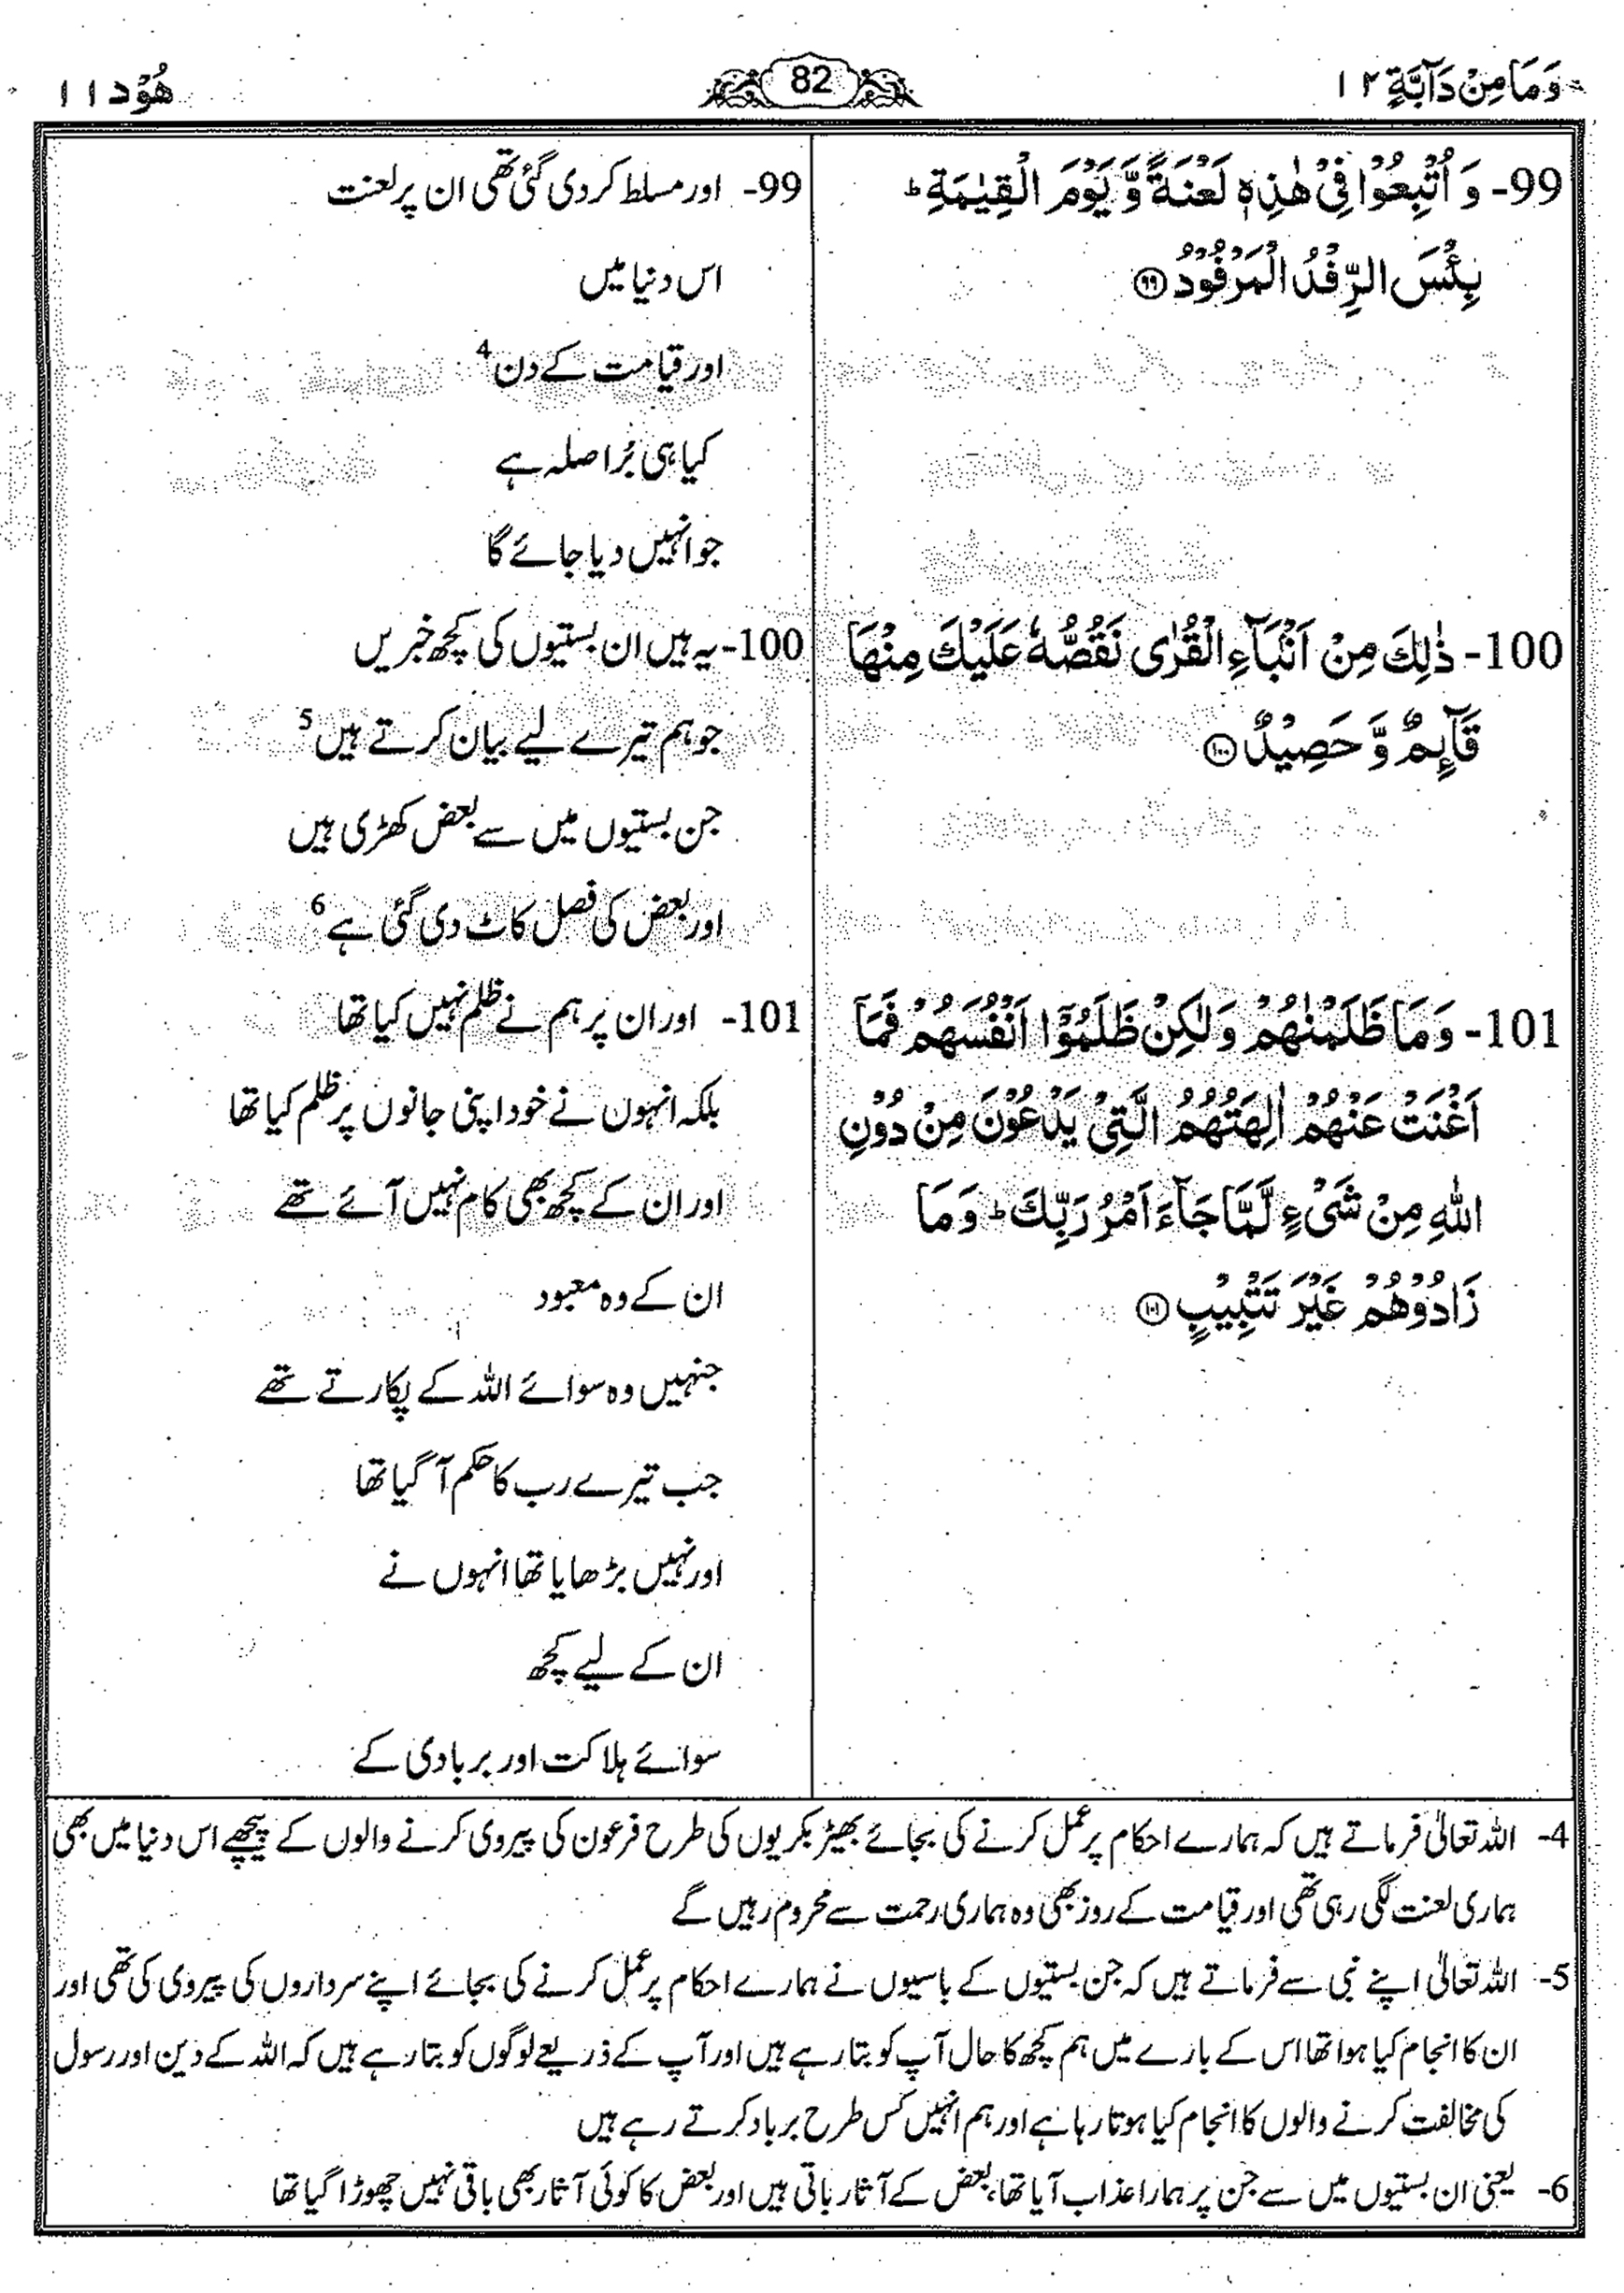 وَمَا مِنْ دَآبَّةٍ ۱۲
82
هُوْد ۱۱
99- وَ اُتْبِعُوْا فِیْ هٰذِهٖ لَعْنَةً وَّ یَوْمَ الْقِیٰمَةِ ؕ
بِئْسَ الرِّفْدُ الْمَرْفُوْدُ ۹۹
100- ذٰلِكَ مِنْ اَنْۢبَآءِ الْقُرٰی نَقُصُّهٗ عَلَیْكَ مِنْهَا
قَآىِٕمٌ وَّ حَصِیْدٌ ۱۰۰
101- وَ مَا ظَلَمْنٰهُمْ وَ لٰكِنْ ظَلَمُوْۤا اَنْفُسَهُمْ فَمَاۤ
اَغْنَتْ عَنْهُمْ اٰلِهَتُهُمُ الَّتِیْ یَدْعُوْنَ مِنْ دُوْنِ
اللّٰهِ مِنْ شَیْءٍ لَّمَّا جَآءَ اَمْرُ رَبِّكَ ؕ وَ مَا
زَادُوْهُمْ غَیْرَ تَتْبِیْبٍ ۱۰۱
99- اور مسلط کر دی گئی تھی ان پر لعنت
اس دنیا میں
اور قیامت کے دن 4
کیا ہی بُرا صلہ ہے
جو انہیں دیا جائے گا
100- یہ ہیں ان بستیوں کی کچھ خبریں
جو ہم تیرے لیے بیان کرتے ہیں 5
جن بستیوں میں سے بعض کھڑی ہیں
اور بعض کی فصل کاٹ دی گئی ہے 6
101- اور ان پر ہم نے ظلم نہیں کیا تھا
بلکہ انہوں نے خود اپنی جانوں پر ظلم کیا تھا
اور ان کے کچھ بھی کام نہیں آئے تھے
ان کے وہ معبود
جنہیں وہ سوائے اللہ کے پکارتے تھے
جب تیرے رب کا حکم آ گیا تھا
اور نہیں بڑھایا تھا انہوں نے
ان کے لیے کچھ
سوائے ہلاکت اور بربادی کے
4- اللہ تعالیٰ فرماتے ہیں کہ ہمارے احکام پر عمل کرنے کی بجائے بھیڑ بکریوں کی طرح فرعون کی پیروی کرنے والوں کے پیچھے اس دنیا میں بھی
ہماری لعنت لگی رہی تھی اور قیامت کے روز بھی وہ ہماری رحمت سے محروم رہیں گے
5- اللہ تعالیٰ اپنے نبی سے فرماتے ہیں کہ جن بستیوں کے باسیوں نے ہمارے احکام پر عمل کرنے کی بجائے اپنے سرداروں کی پیروی کی تھی اور
ان کا انجام کیا ہوا تھا اس کے بارے میں ہم کچھ کا حال آپ کو بتا رہے ہیں اور آپ کے ذریعے لوگوں کو بتا رہے ہیں کہ اللہ کے دین اور رسول
کی مخالفت کرنے والوں کا انجام کیا ہوتا رہا ہے اور ہم انہیں کس طرح برباد کرتے رہے ہیں
6- یعنی ان بستیوں میں سے جن پر ہمارا عذاب آیا تھا، بعض کے آثار باقی ہیں اور بعض کا کوئی آثار بھی باقی نہیں چھوڑا گیا تھا